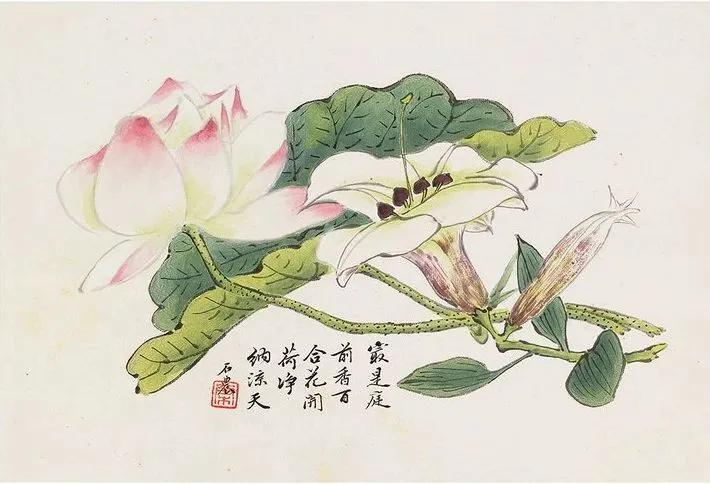 冣是庭
前香百
合花開
荷淨
納涼天
石農